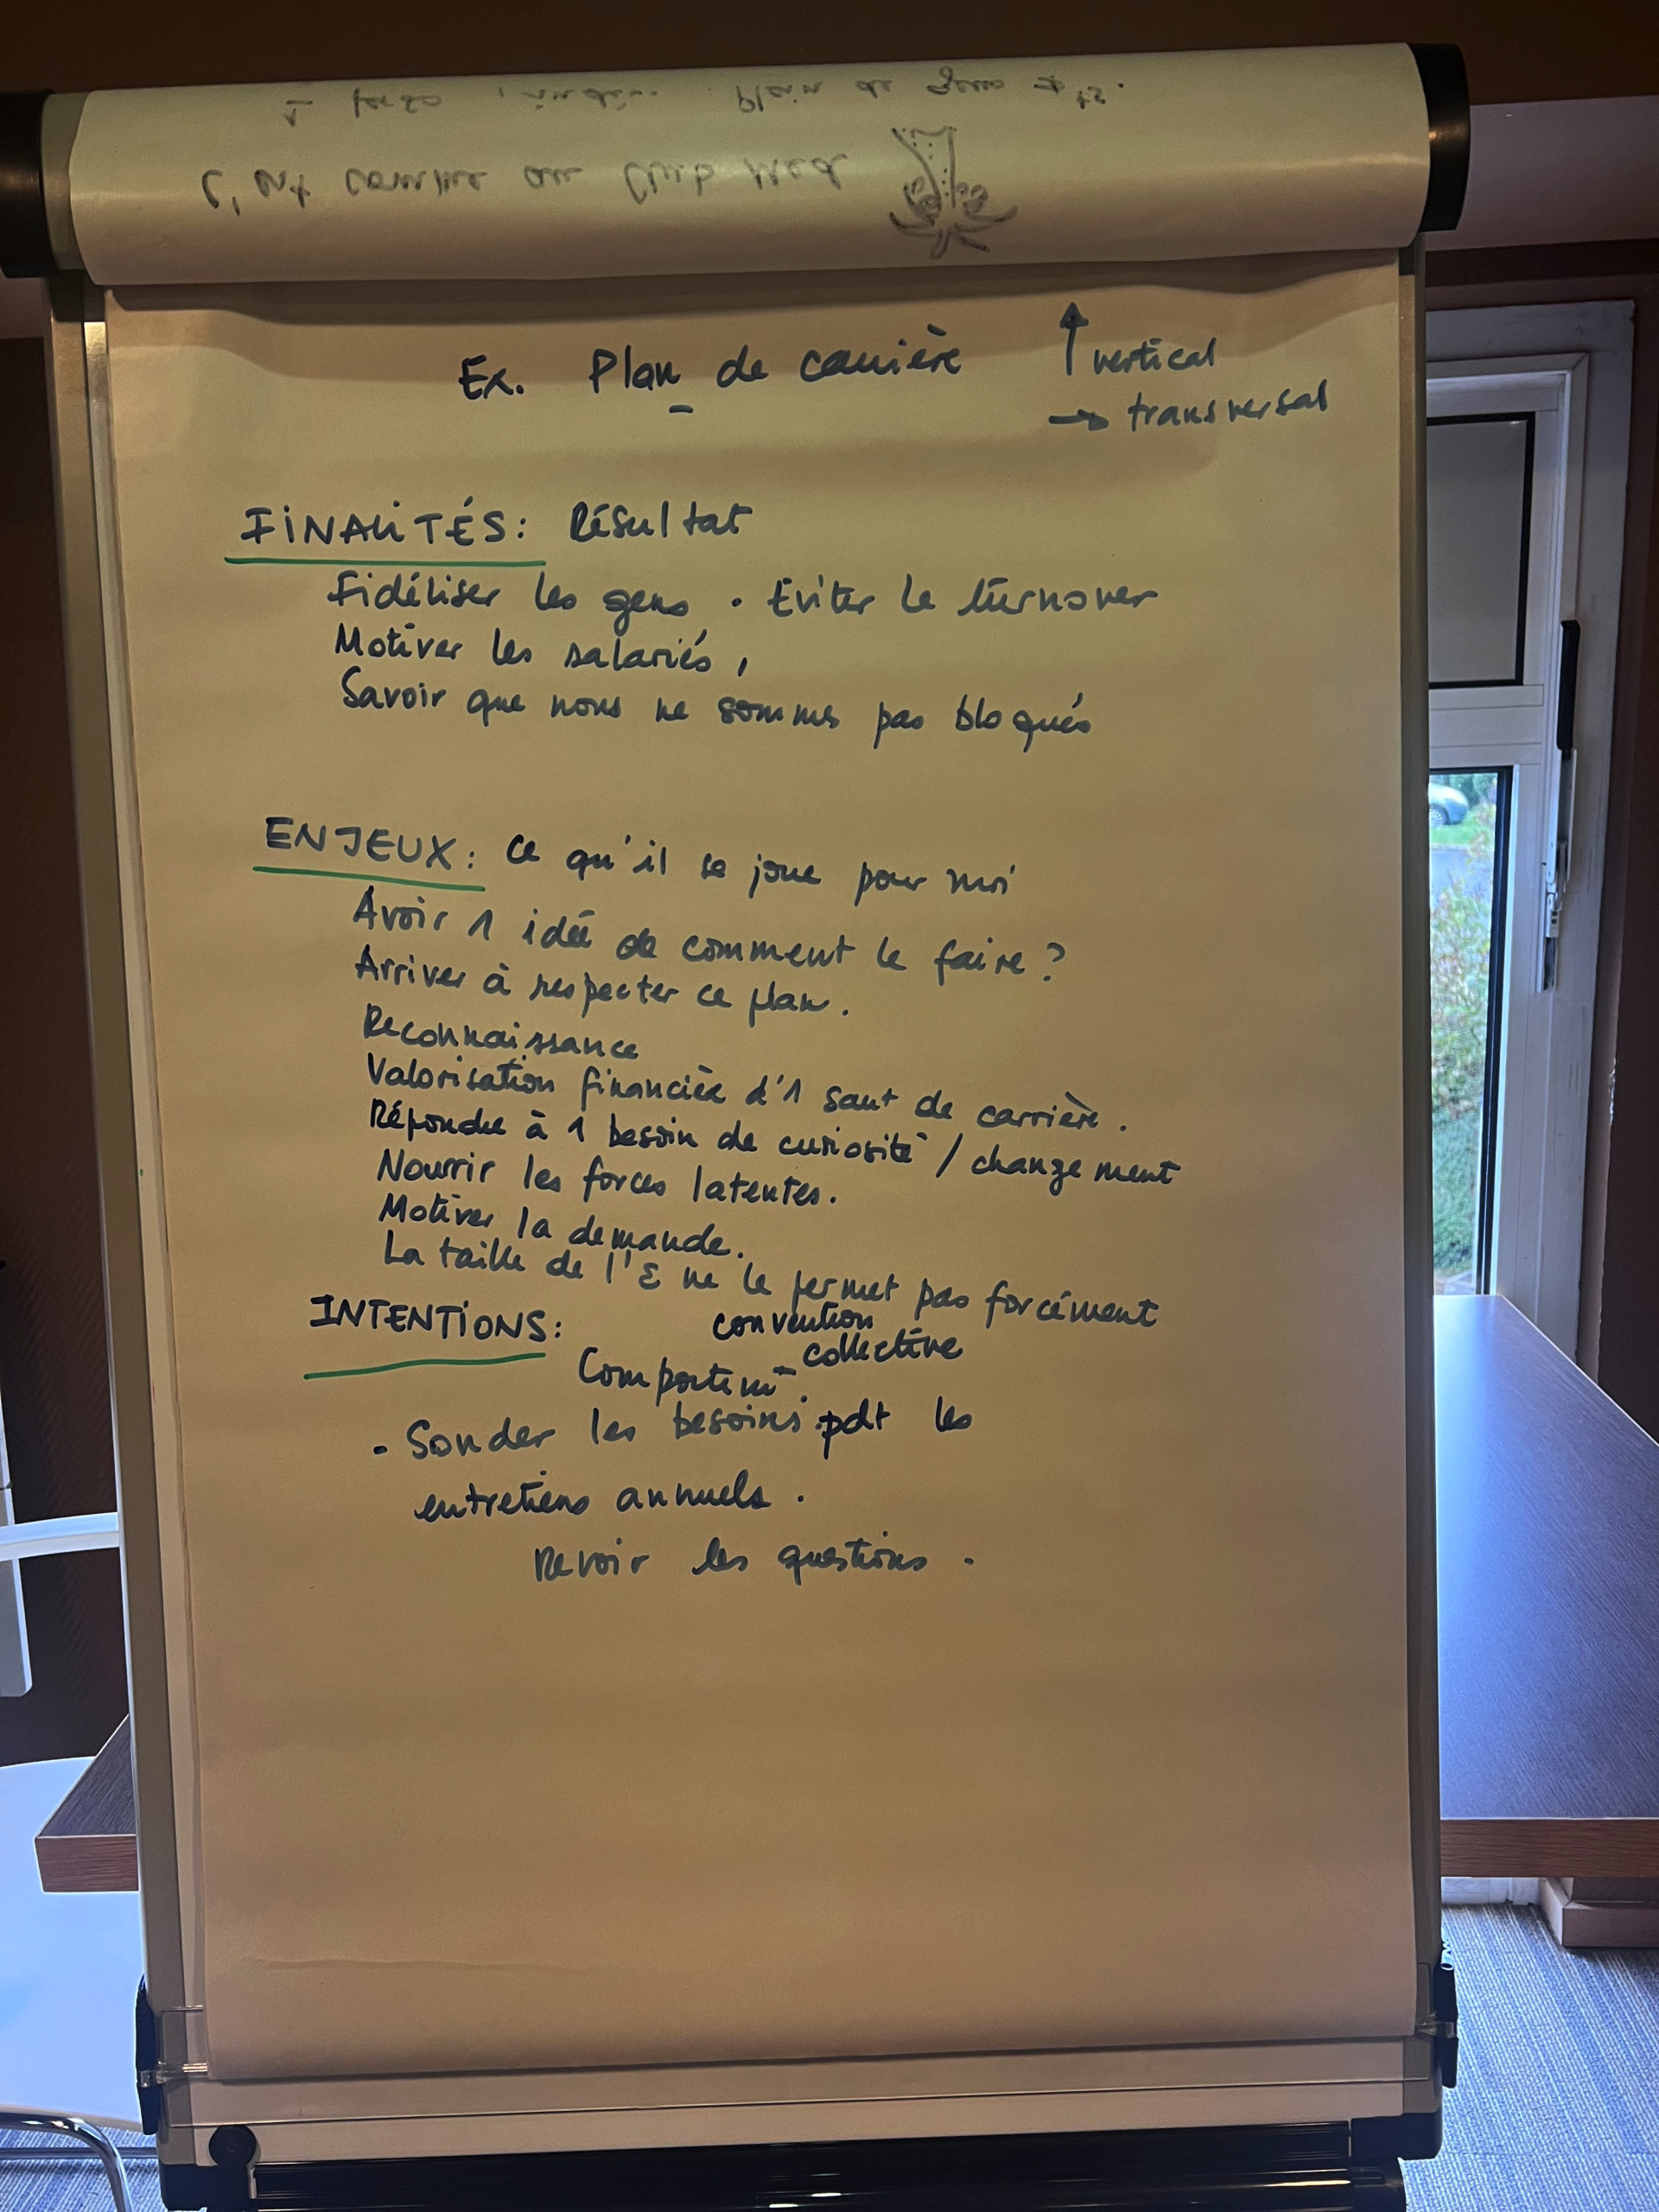 C'est comme au Club Med
Ex. Plan de carrière ↑ vertical
→ transversal
FINALITÉS: Résultat
Fidéliser les gens . Eviter le turnover
Motiver les salariés,
Savoir que nous ne sommes pas bloqués
ENJEUX: Ce qu'il se joue pour moi
Avoir 1 idée de comment le faire ?
Arriver à respecter ce plan.
Reconnaissance
Valorisation financière d'1 saut de carrière.
Répondre à 1 besoin de curiosité / changement
Nourrir les forces latentes.
Motiver la demande.
La taille de l'E ne le permet pas forcément
convention
collective
INTENTIONS:
Comportemt.
. Sonder les besoins pdt les
entretiens annuels.
Revoir les questions.